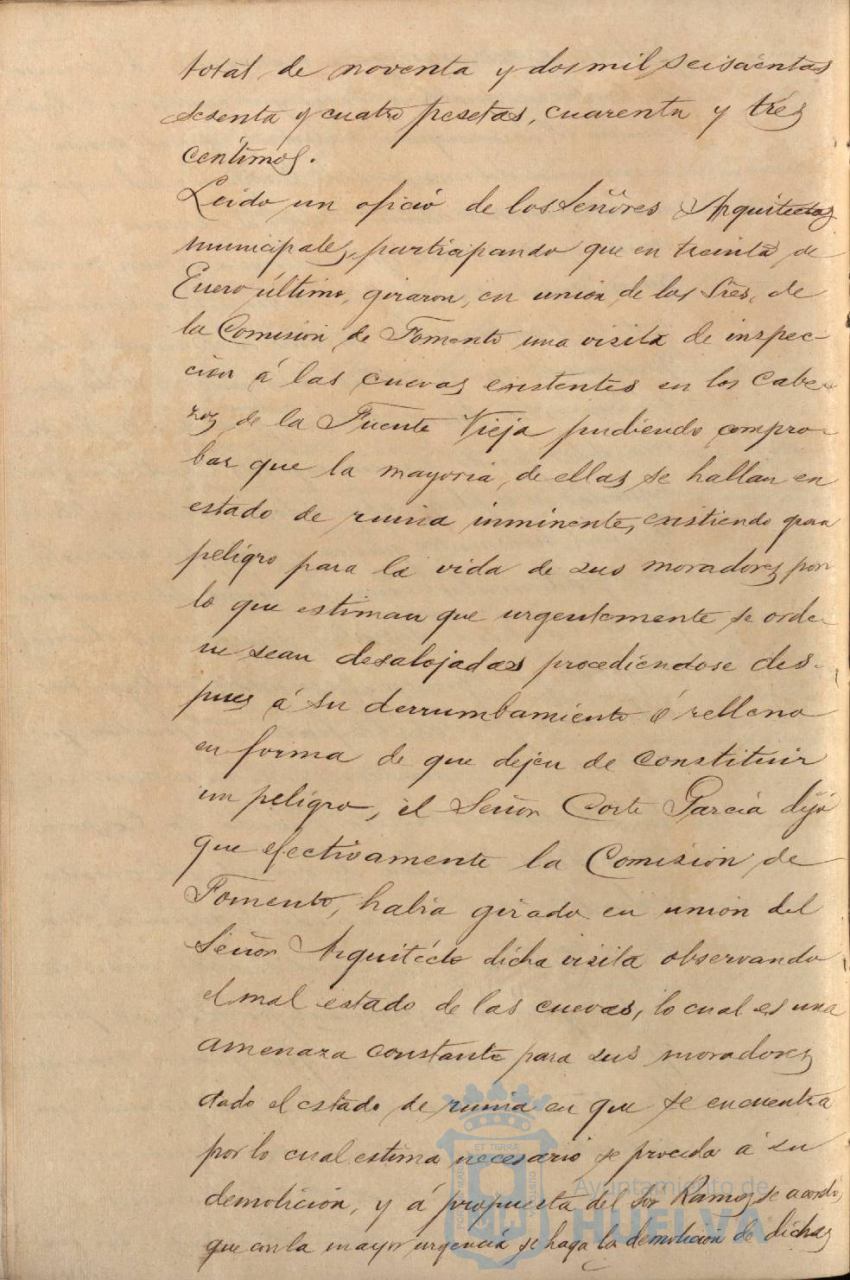 total de noventa y dos mil seiscientas
sesenta y cuatro pesetas, cuarenta y tres
centimos.
Leido un oficio de los Señores Arquitectos
municipales, participando que en treinta de
Enero último, giraron, en union de los Sres. de
la Comision de Fomento una visita de inspec-
cion á las cuevas existentes en los Cabe-
zos de la Fuente Vieja pudiendo compro-
bar que la mayoria, de ellas, se hallan en
estado de ruina inminente, existiendo gran
peligro para la vida de sus moradores por
lo que estiman que urgentemente se orde-
ne sean desalojadas procediéndose des-
pues á su derrumbamiento ó relleno
en forma de que dejen de constituir
un peligro, el Señor Corte Garcia dijó
que efectivamente la Comision de
Fomento, habia girado en union del
Señor Arquitécto dicha visita observando
el mal estado de las cuevas, lo cual es una
amenaza constante para sus moradores
dado el estado de ruina en que se encuentra
por lo cual estima necesario se proceda á su
demolicion, y á propuesta del Sor Ramos, se acordó,
que con la mayor urgencia se haga la demolicion de dichas
Ayuntamiento de
HUELVA